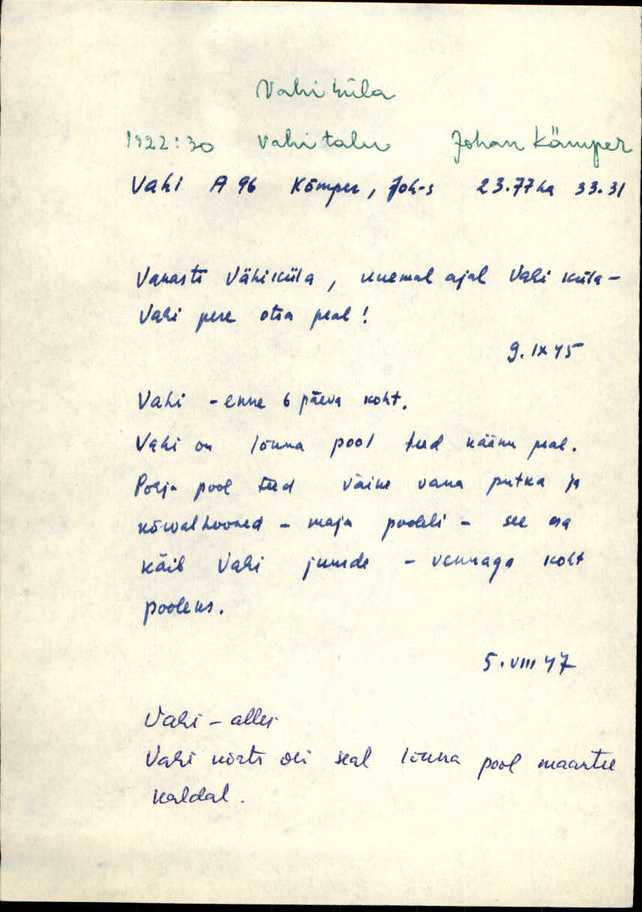 Vahi küla
1922:30 Vahi talu Johan Kämper
Vahi A 96 Kõmper, Joh-s 23.77ha 33.31
Vanasti Vähiküla, uuemal ajal Vahi küla -
Vahi pere otsa peal!
9. IX 45
Vahi - enne 6 päeva koht.
Vahi on lõuna pool teed käänu peal.
Põhja pool teed väike vana putka ja
kõrvalhooned - maja pooleli - see osa
käib Vahi juurde - vennaga koht
pooleks.
5. VIII 47
Vahi - alles
Vahi kõrts oli seal lõuna pool maantee
kaldal.